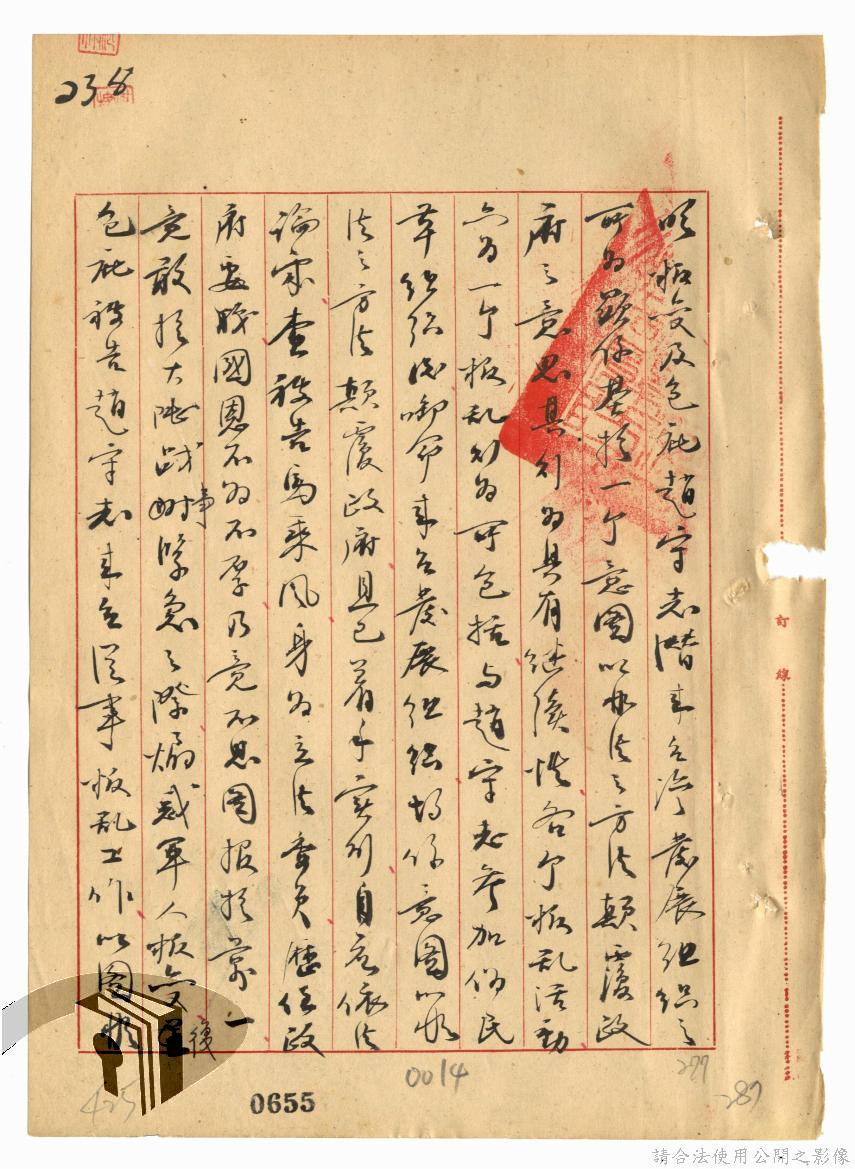 235
叛變及包庇趙守志潛來台灣發展組織之
行為顯係基於一个意圖以非法之方法顛覆政
府之意思其行為具有繼續性各个叛乱活動
亦為一个叛乱行為所包括与趙守志參加偽民
革組織後啣命來台發展組織均係意圖以非
法之方法顛覆政府且已着手實行自應依法
論處查被告馬乘风身為立法委員歷任政
府要職國恩不為不厚乃竟不思圖報於萬一
竟敢於大陸战爭緊急之際煽惑軍人叛變後
包庇被告趙守志來台從事叛乱工作以圖
訂線
0655
0014
299
287
425
請合法使用公開之影像